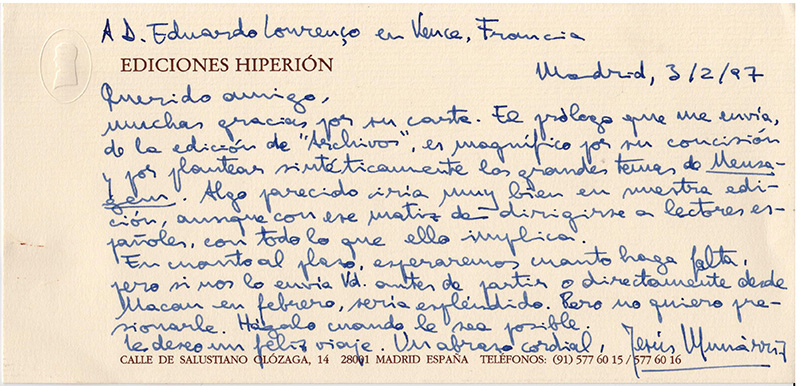 A D. Eduardo Lourenço en Vence, Francia
EDICIONES HIPERIÓN
Madrid, 3/2/97
Querido amigo,
muchas gracias por su carta. El prólogo que me envía,
de la edición de "Archivos", es magnífico por su concisión
y por plantear sintéticamente los grandes temas de Mensa-
gem. Algo parecido iría muy bien en nuestra edi-
ción, aunque con ese matiz de dirigirse a lectores es-
pañoles, con todo lo que ello implica.
En cuanto al plazo, esperaremos cuanto haga falta,
pero si nos lo envía Vd. antes de partir o directamente desde
Macau en febrero, sería espléndido. Pero no quiero pre-
sionarle. Hágalo cuando le sea posible.
Le deseo un feliz viaje. Un abrazo cordial, Jesús Munárriz
CALLE DE SALUSTIANO OLÓZAGA, 14 28001 MADRID ESPAÑA TELÉFONOS: (91) 577 60 15 / 577 60 16